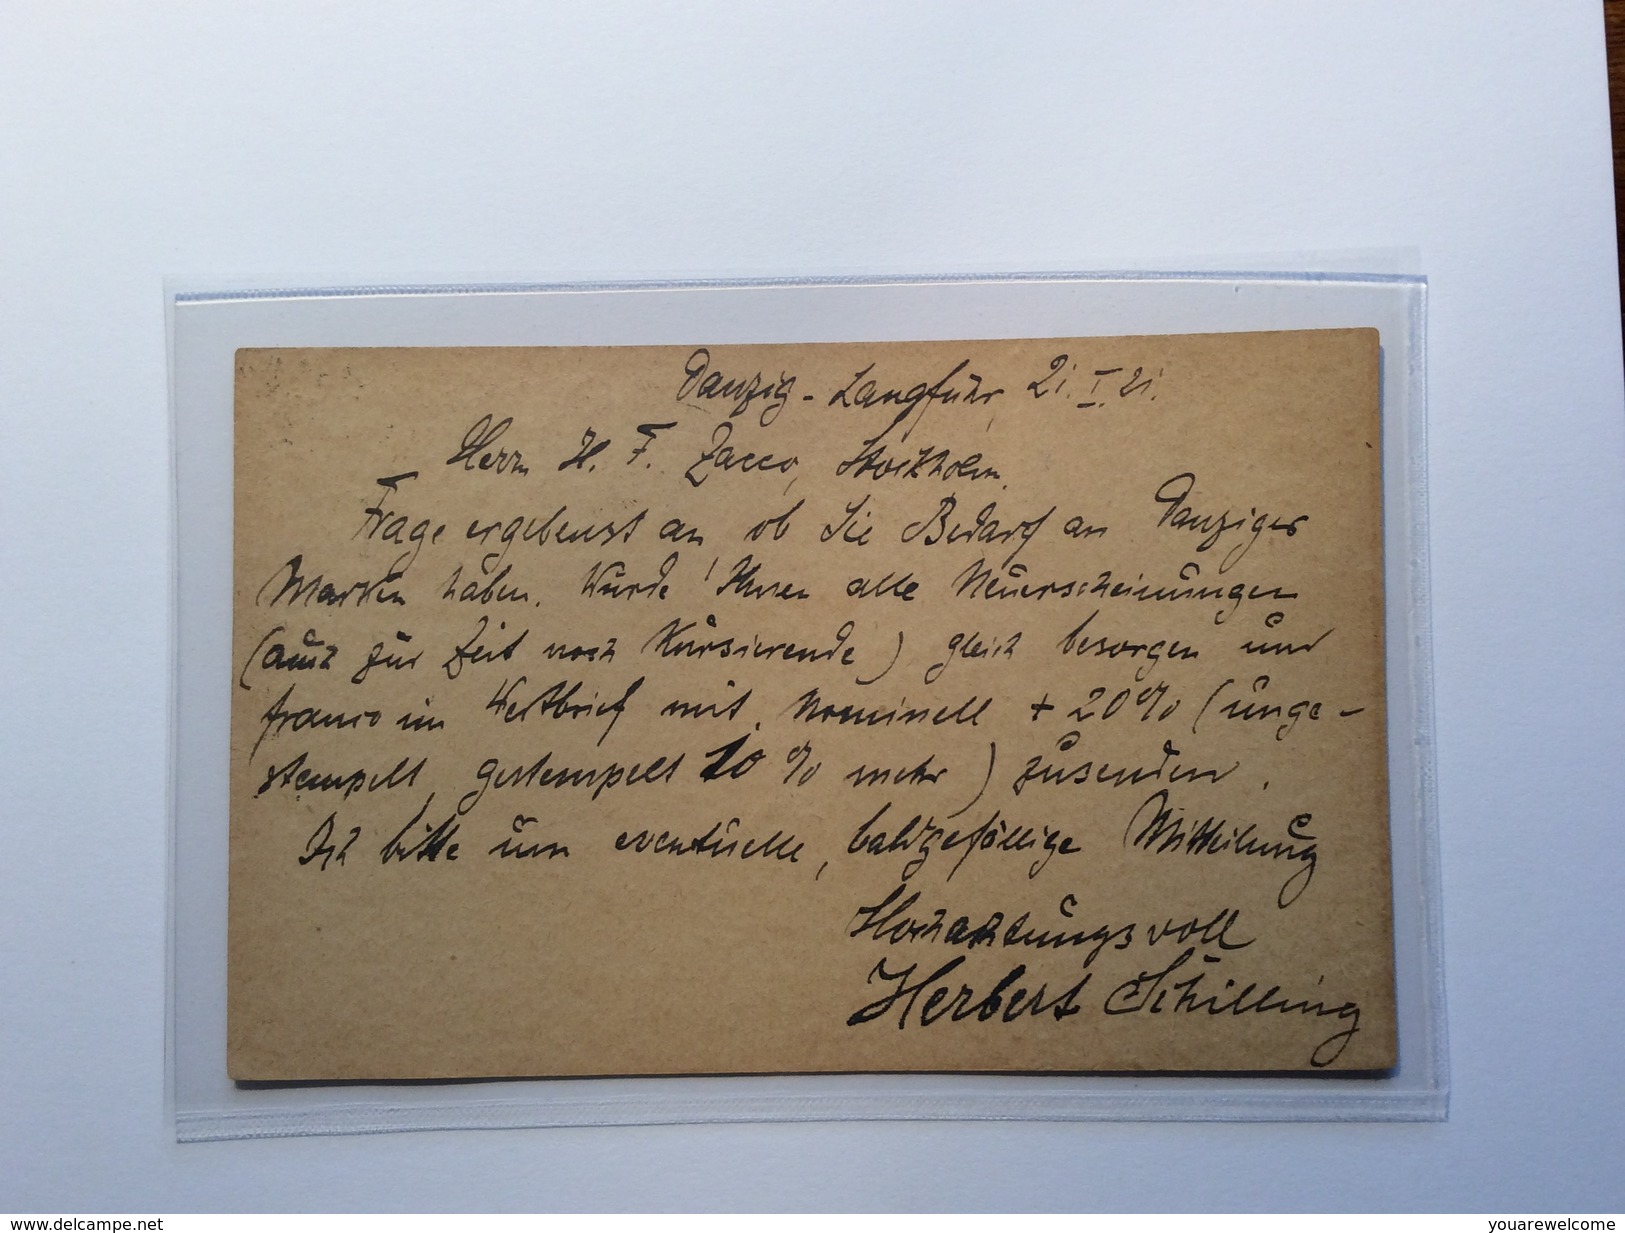 Danzig - Langfuhr, 21. I. 21.
Herrn H. F. Zacco, Stockholm.
Frage ergebenst an, ob Sie Bedarf an Danziger
Marken haben. Würde Ihnen alle Neuerscheinungen
(auch zur Zeit noch Kursierende) gleich besorgen und
franco im Wertbrief mit Nominell + 20% (unge-
stempelt, gestempelt 10% mehr) zusenden.
Ich bitte um eventuelle, baldgefällige Mitteilung
Hochachtungsvoll
Herbert Schilling
www.delcampe.net
youarewelcome